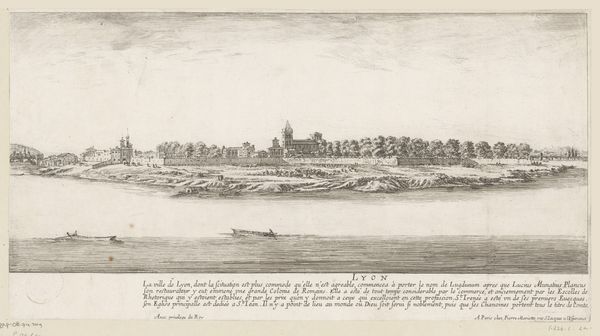 LYON
La ville de Lyon, dont la scituation est plus commode qu'elle n'est agreable, commença à porter le nom de Lugdunum apres que Lucius Munatius Plancus
son restaurateur y eut emmené une grande Colonie de Romains. Elle a esté de tout temps considerable par le commerce, et anciennement par les Escolles de
Rhetorique qui y estoient establies, et par les prix qu'on y donnoit a ceux qui excelloient en cette profession. St. Irenée a esté un de ses premiers Euesques.
son Eglise principalle est dediée a St. Iean. Il n'y a point de lieu au monde où Dieu soit serui si noblement, puis que ses Chanoines portent tous le titre de Comte
Auec privilege du Roy
A Paris chez Pierre Mariette, rue S. Iacques a l'Esperance